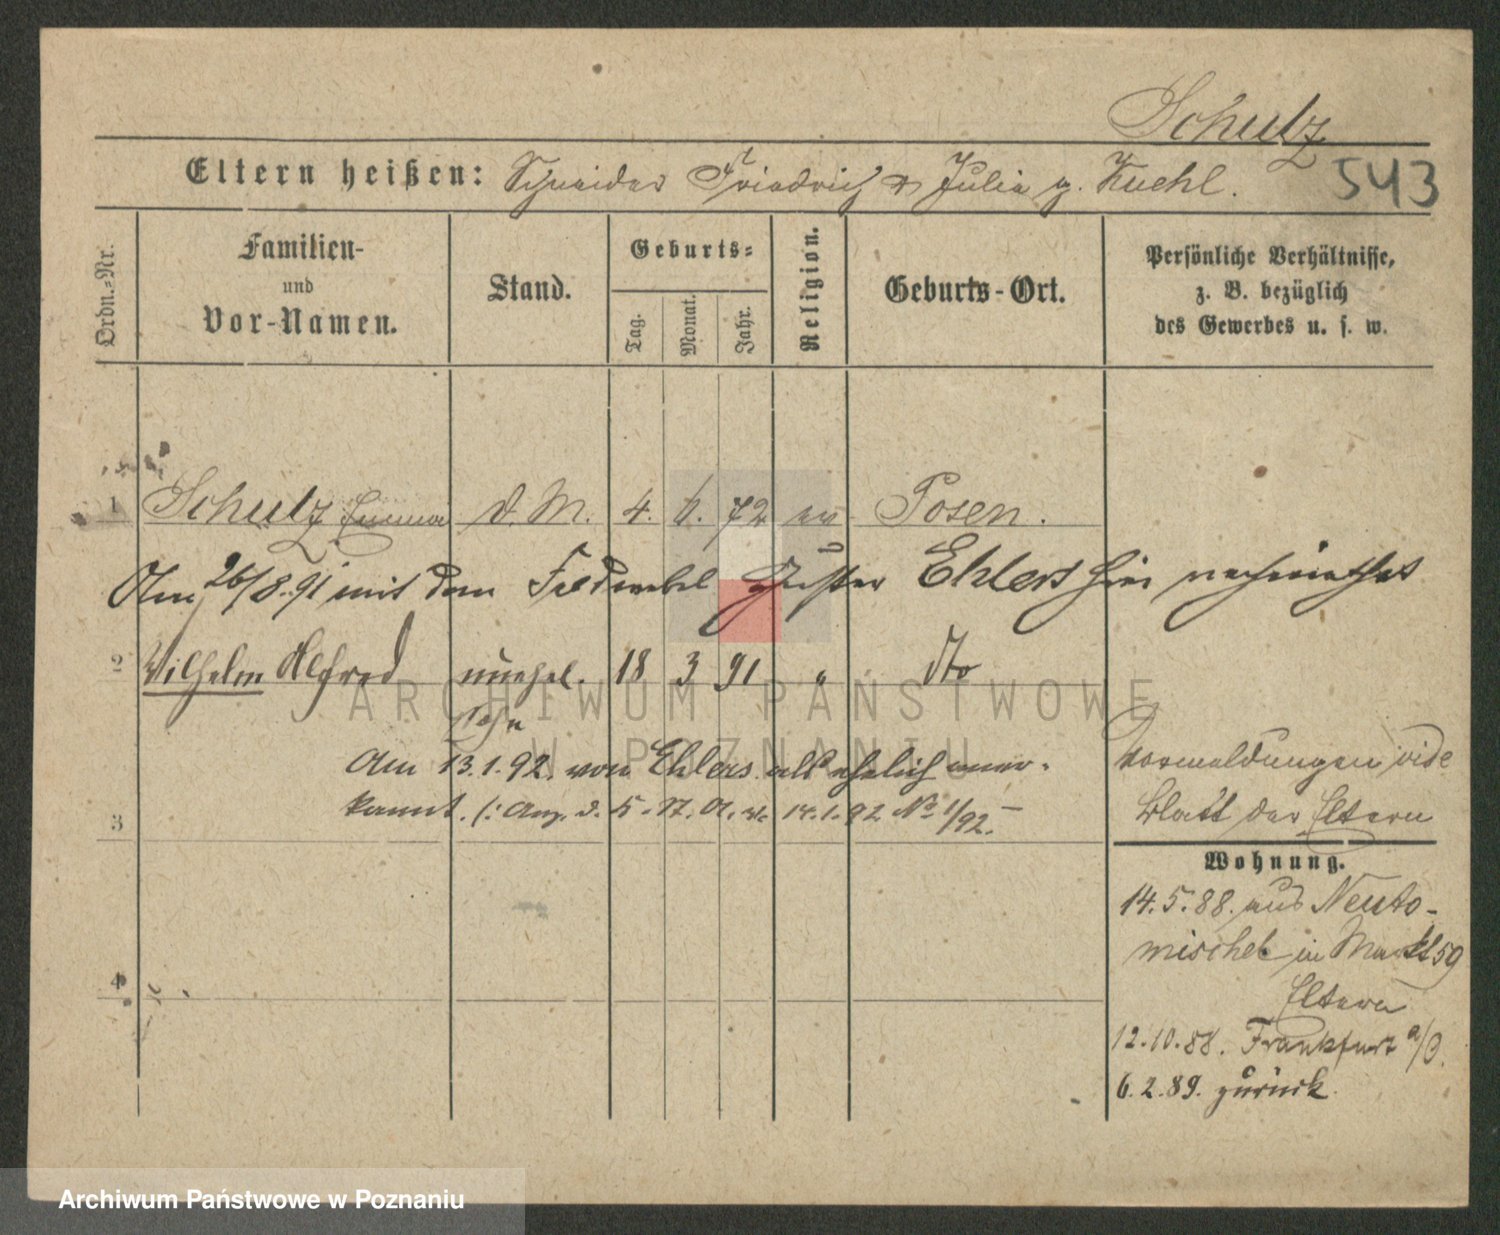 Schulz
Eltern heißen: Schneider Friedrich u Julia g. Kuehl.
543
Ordn.-Nr.
Familien- und Vor-Namen.
Stand.
Geburts-
Tag.
Monat.
Jahr.
Religion.
Geburts-Ort.
Persönliche Verhältnisse,
z. B. bezüglich
des Gewerbes u. s. w.
1 Schulz Emma d. M. 4. 6. 72 ev Posen.
Am 26/8. 91 mit dem Feldwebel Gustav Ehlers hier verheirathet
2 Wilhelm Alfred unehel. 18 3 91 " dto
Sohn
Am 13.1.92. von Ehlers als ehelich aner-
kannt. (: Anz. d. St. A. v. 14.1.92 No 1/92.
3
4
Vormeldungen vide
Blatt der Eltern
Wohnung.
14.5.88. aus Neuto-
mischel in Markt 59
Eltern
12.10.88. Frankfurt a/O.
6.2.89. zurück.
ARCHIWUM PAŃSTWOWE
W POZNANIU
Archiwum Państwowe w Poznaniu